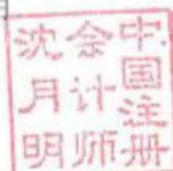 中国注册
会计师
沈月明